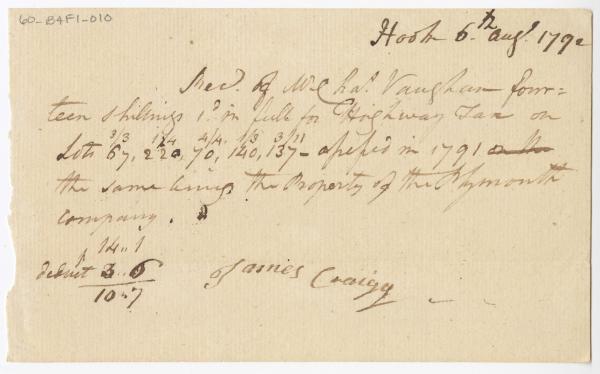 60-B4F1-010
Hook 6.th augt. 1792
Recd. of Mr Chas. Vaughan four=
teen shillings 1d. in full for Highway Tax on
3/3 1/4 4/4. 1/3 3/11
Lots 67, 220, 70, 140, 137 - assess'd in 1791
the same being the Property of the Plymouth
company.
14..1
deduct 3..6
10..7
James Craigg